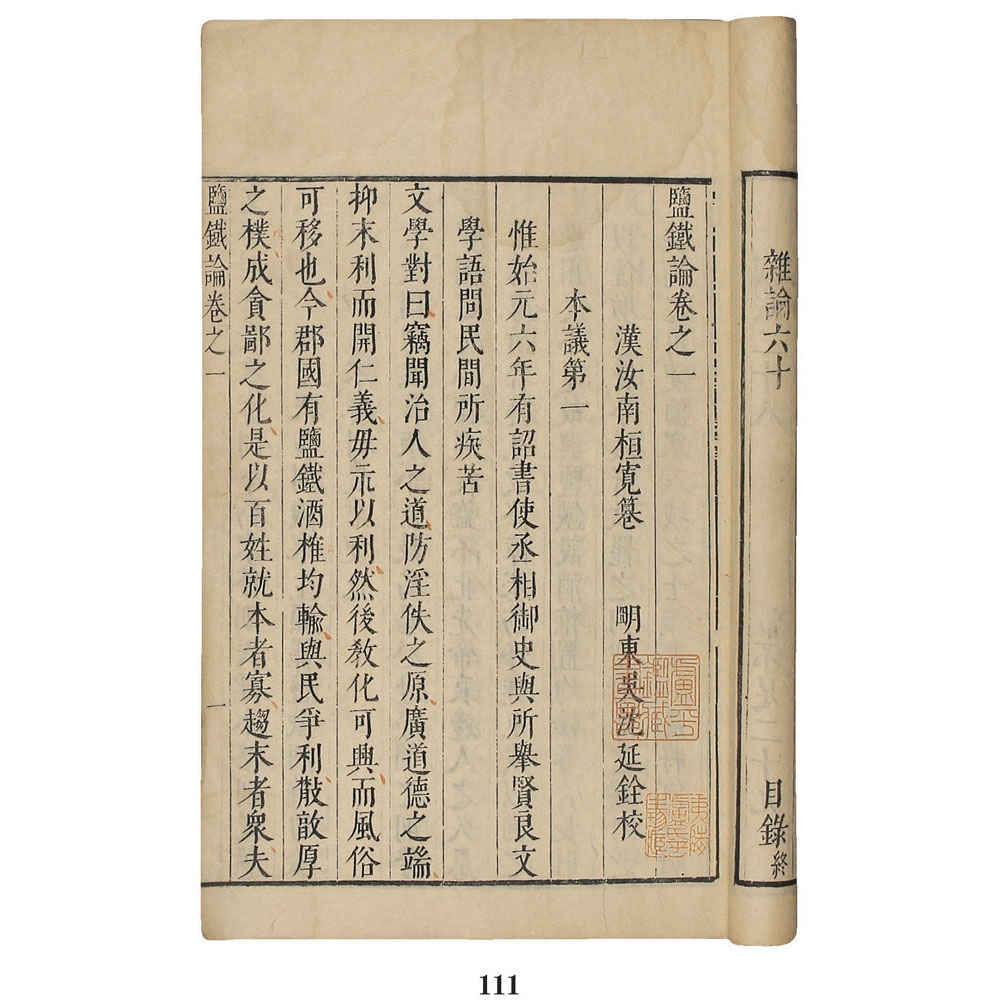 雜論六十
目錄終
鹽鐵論卷之一
漢汝南桓寬纂
明東吳沈延銓校
本議第一
惟始元六年有詔書使丞相御史與所舉賢良文
學語問民間所疾苦
文學對曰竊聞治人之道防淫佚之原廣道德之端
抑末利而開仁義毋示以利然後教化可興而風俗
可移也今郡國有鹽鐵酒榷均輸與民爭利散敦厚
之樸成貪鄙之化是以百姓就本者寡趨末者眾夫
鹽鐵論卷之一
一
111